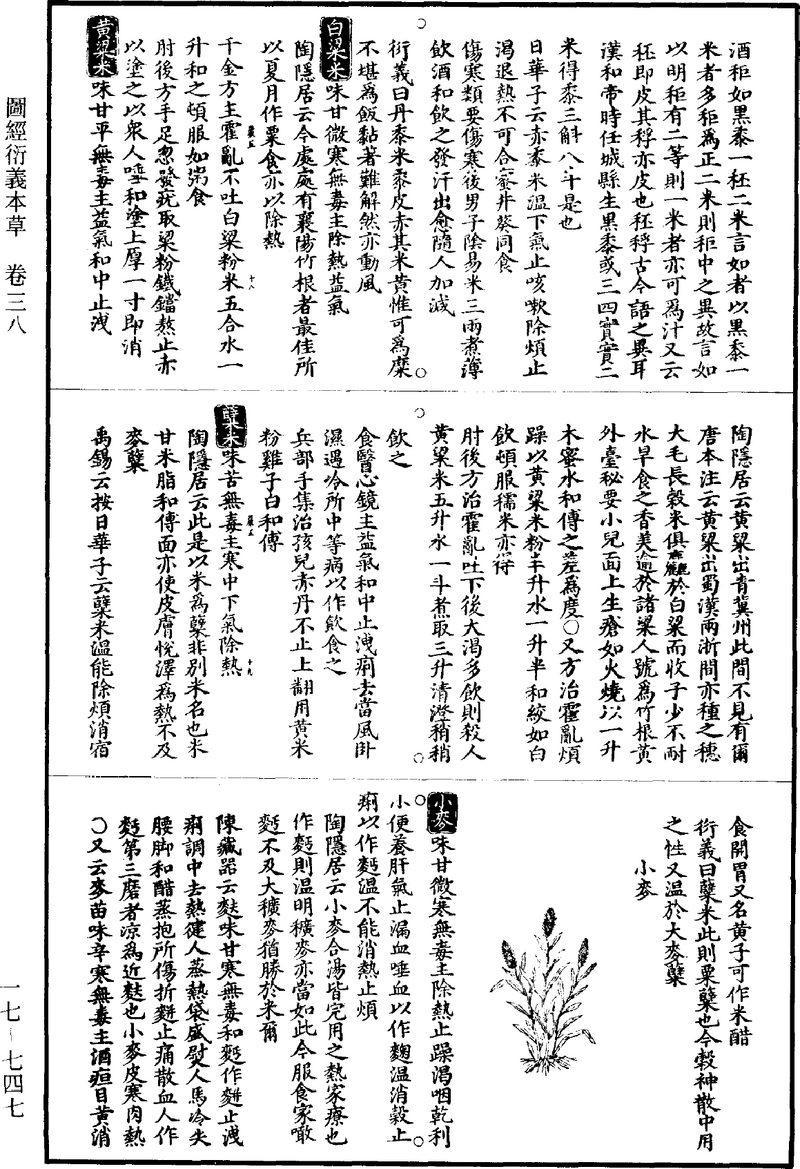 圖經衍義本草　卷三八
一七—七四七
酒秬如黑黍一秠二米言如者以黑黍一
米者多秬為正二米則秬中之異故言如
以明秬有二等則一米者亦可為汁又云
秠即皮其稃亦皮也秠稃古今語之異耳
漢和帝時任城縣生黑黍或三四實實二
米得黍三斛八斗是也
日華子云赤黍米溫下氣止咳嗽除煩止
渴退熱不可合蜜并葵同食
傷寒類要傷寒後男子陰易米三兩煮薄
飲酒和飲之發汗出愈隨人加減
衍義曰丹黍米黍皮赤其米黃惟可為糜
不堪為飯黏著難解然亦動風
白粱米味甘微寒無毒主除熱益氣
陶隱居云今處處有襄陽竹根者最佳所
以夏月作粟食亦以除熱
千金方主霍亂不吐白粱粉米五合水一
升和之頓服如粥食
肘後方手足忽發疣取粱粉鐵鐺熬止赤
以塗之以衆人唾和塗上厚一寸即消
黃粱米味甘平無毒主益氣和中止洩
陶隱居云黃粱出青冀州此間不見有爾
唐本注云黃粱出蜀漢兩浙間亦種之穗
大毛長穀米俱麤於白粱而收子少不耐
水旱食之香美逾於諸粱人號為竹根黃
外臺秘要小兒面上生瘡如火燒以一升
木蜜水和傅之差為度○又方治霍亂煩
躁以黃粱米粉半升水一升半和絞如白
飲頓服糯米亦得
肘後方治霍亂吐下後大渴多飲則殺人
黃粱米五升水一斗煮取三升清澄稍稍
飲之
食醫心鏡主益氣和中止洩痢去當風卧
濕遇冷所中等病以作飲食之
兵部手集治孩兒赤丹不止上翻用黃米
粉雞子白和傅
糵米味苦無毒主寒中下氣除熱
陶隱居云此是以米為糵非別米名也米
甘米脂和傅面亦使皮膚悅澤為熱不及
麥糵
禹錫云按日華子云糵米溫能除煩消宿
食開胃又名黃子可作米醋
衍義曰糵米此則粟糵也今穀神散中用
之性又溫於大麥糵
小麥
小麥味甘微寒無毒主除熱止躁渴咽乾利
小便養肝氣止漏血唾血以作麴溫消穀止
痢以作麪溫不能消熱止煩
陶隱居云小麥合湯皆完用之熱家療也
作麪則溫明穬麥亦當如此今服食家噉
麪不及大穬麥猶勝於米爾
陳藏器云麩味甘寒無毒和麪作餅止洩
痢調中去熱健人蒸熱袋盛熨人馬冷失
腰脚和醋蒸抱所傷折處止痛散血人作
麪第三磨者涼為近麩也小麥皮寒肉熱
○又云麥苗味辛寒無毒主酒疸目黃消